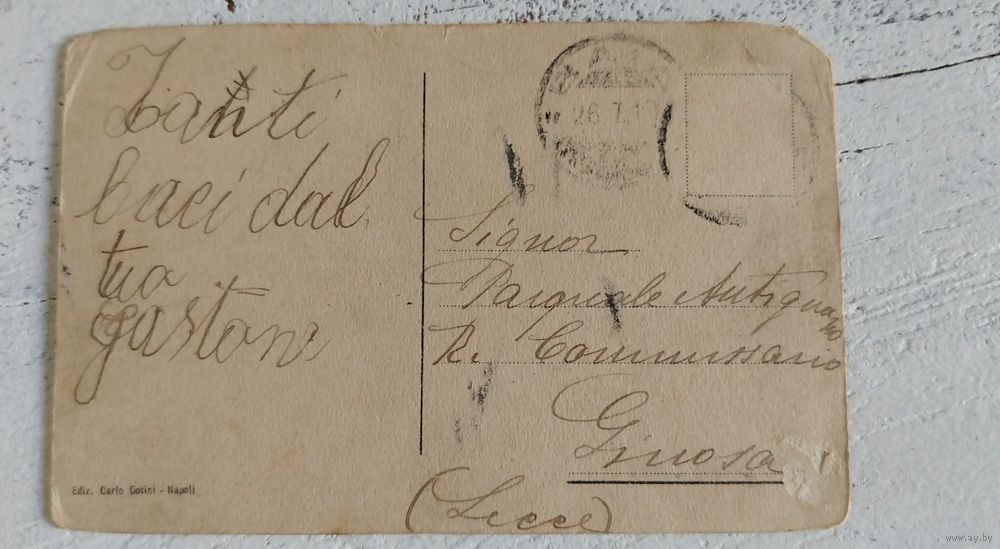 Tanti
baci dal
tuo
Gastone
Ediz. Carlo Cotini - Napoli
26.7.1
Signor
Pasquale Antiquario
R. Commissario
Ginosa
(Lecce)
www.ay.by